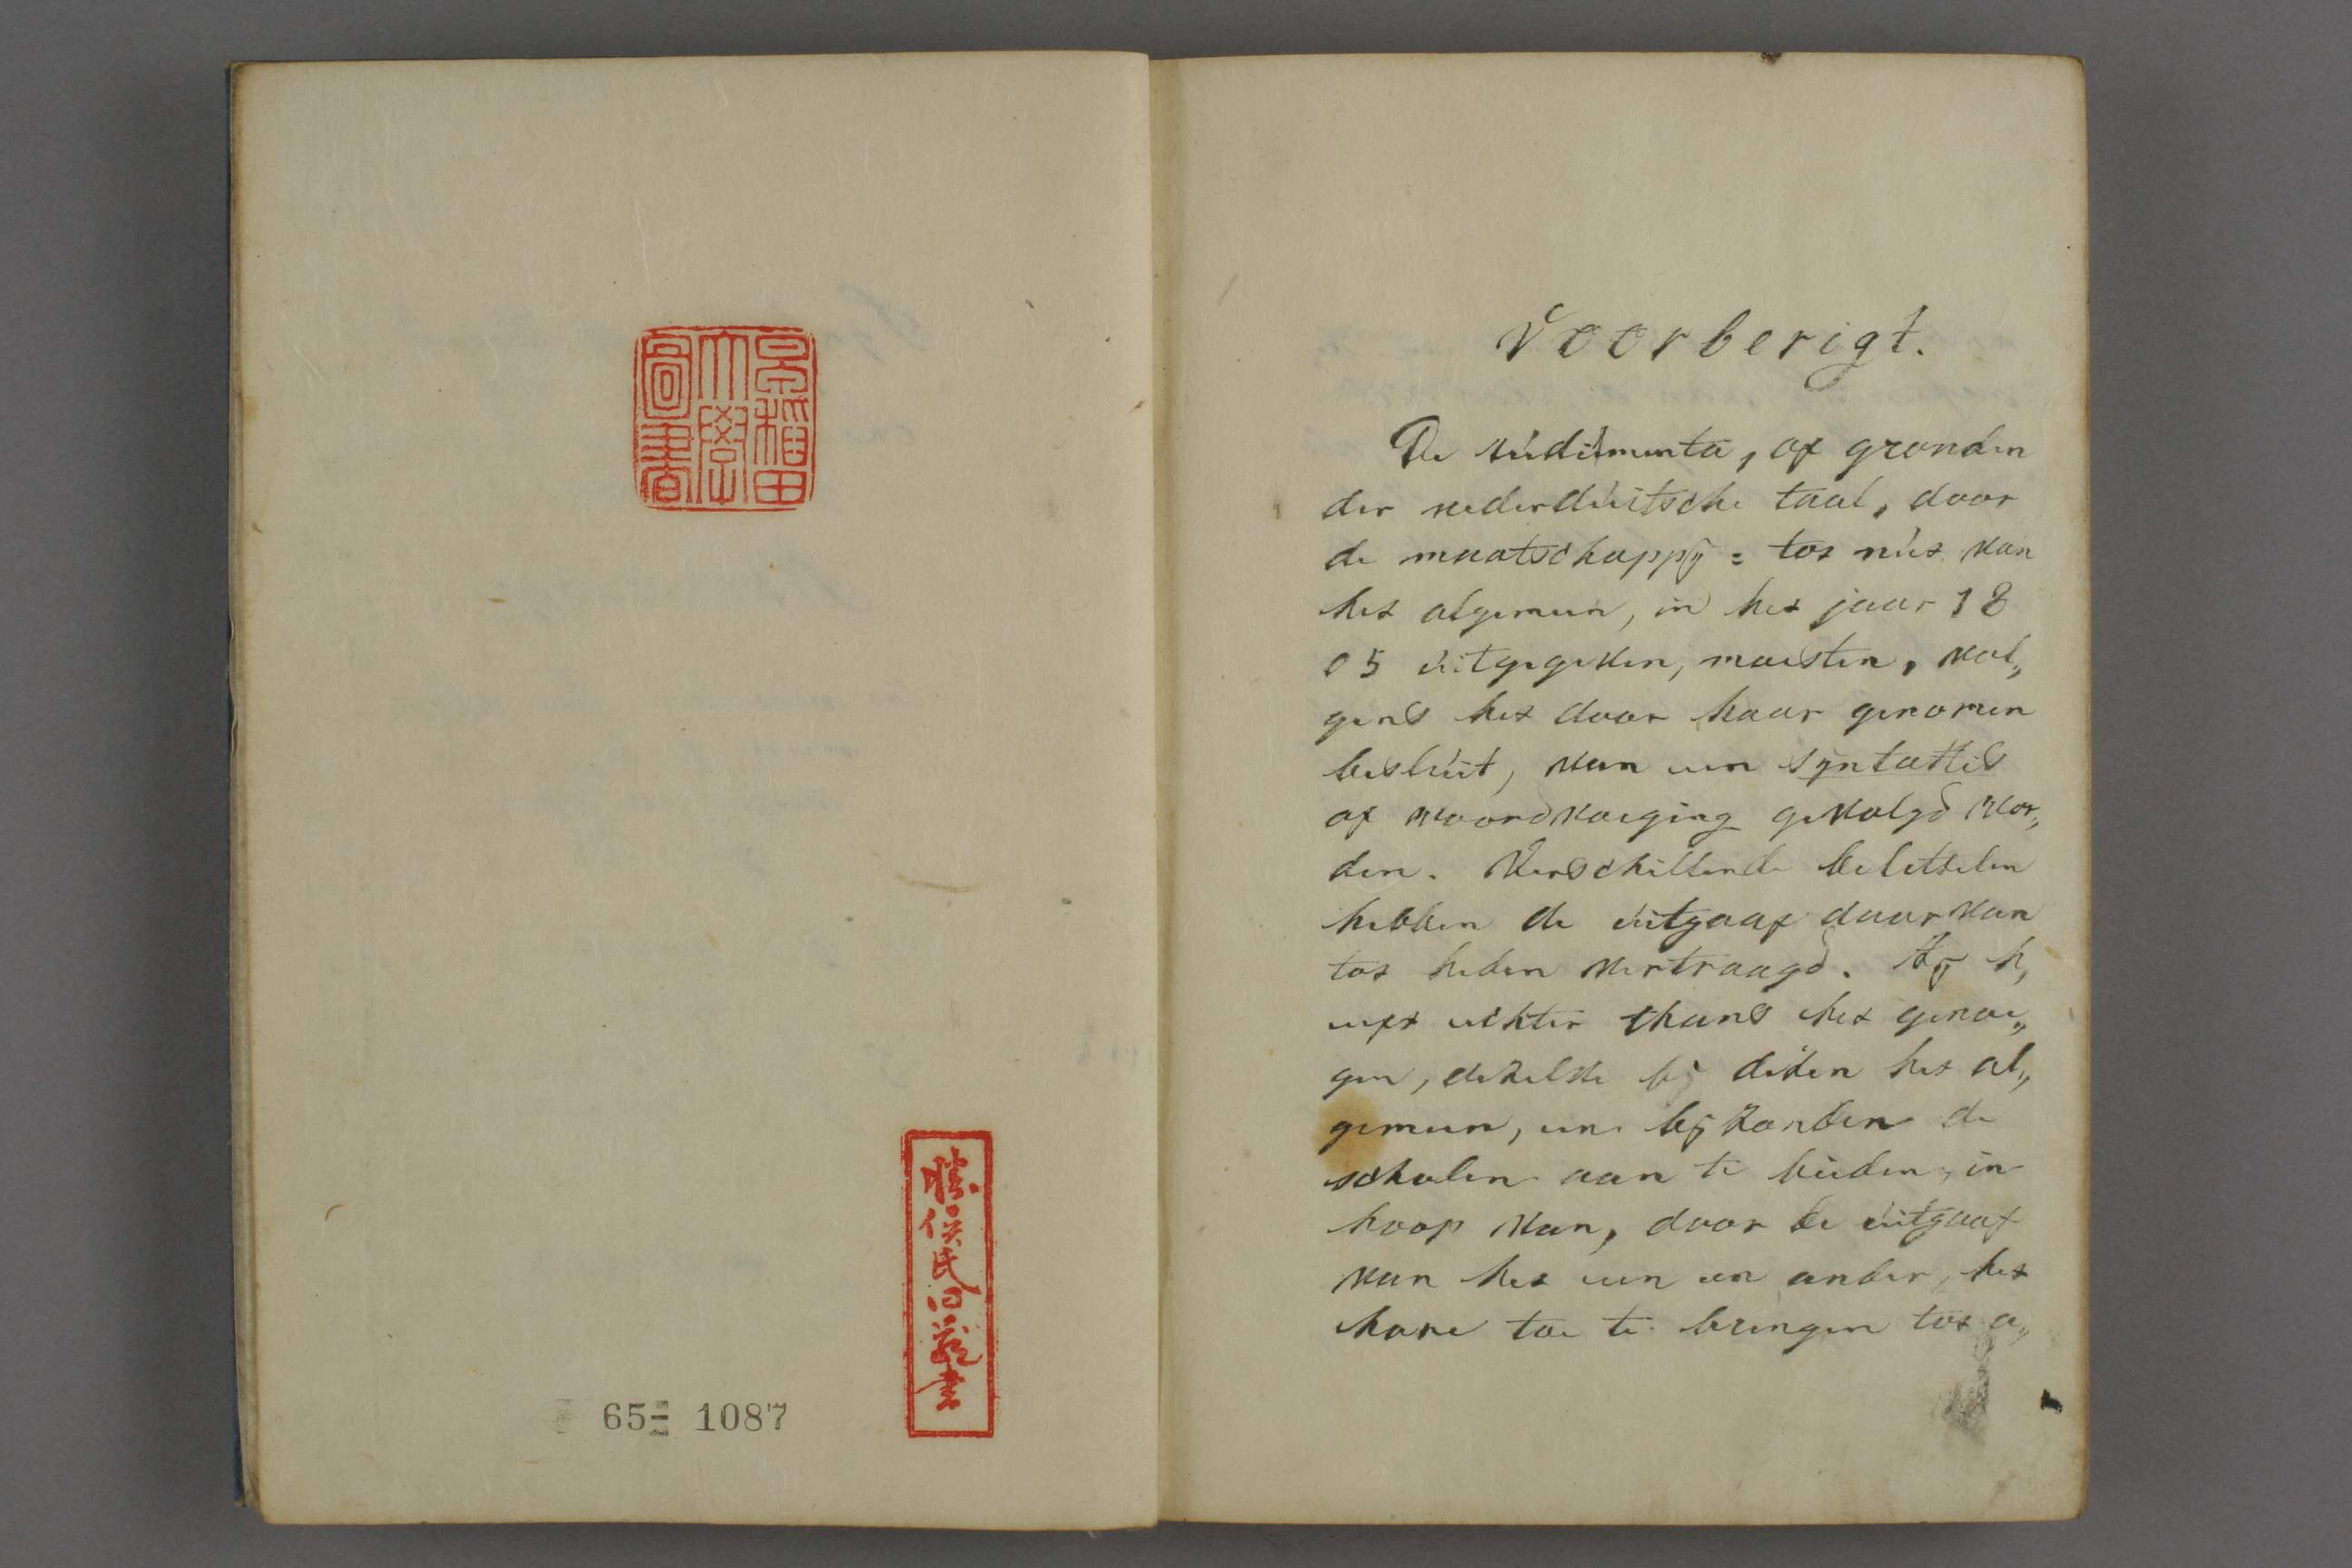 早稲田
大學
圖書
勝俣氏图蔵書
65- 1087
Voorberigt.
De rudimenta, of gronden
der nederduitsche taal, door
de maatschappij = tot nut van
het algemeen, in het jaar 18
05 uitgegeven, moesten, vol„
gens het door haar genomen
besluit, van een syntaxis
of woordvoeging gevolgd wor„
den. Verschillende beletselen
hebben de uitgaaf daar van
tot heden vertraagd. Zij h„
eeft echter thans het genoe„
gen, dezelve bij dezen het al„
gemeen, en bijzonder de
scholen aan te bieden, in
hoop van, door de uitgaaf
van het een en ander, het
hare toe te brengen tot a„